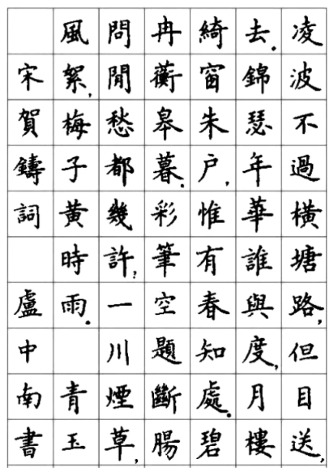 凌波不過橫塘路,但目送,
去。錦瑟年華誰與度,月樓
綺窗朱戶,惟有春知處。碧
冉蘅皋暮。彩筆空題斷腸
問閒愁都幾許,一川煙草,
風絮,梅子黃時雨。 青玉
宋賀鑄詞 盧中南書